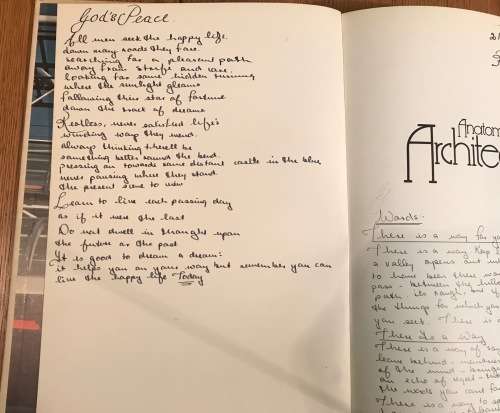 God's Peace.
All men seek the happy life.
down many roads they fare
searching for a pleasant path
away from strife and care.
looking for some hidden turning
where the sunlight gleams
following their star of fortune
down the track of dreams
Restless, never satisfied life's
winding way they wend.
always thinking there'll be
something better round the bend.
pressing on towards some distant castle in the blue
never pausing where they stand
the present scene to view
Learn to live each passing day
as if it were the last
Do not dwell in thought upon
the future or the past
It is good to dream a dream:
it helps you on your way but remember you can
live the happy life Today
2/
Anatom
Archite
Words.
There is a way for yo
There is a way Keep
a valley opens out
to home been there wo
pass - between the hills
path. its rough one
the things for which you
you seek. There is
There Is a Way
There is a way of say
leave behind -
of the mind -
an echo of
the words you cant
There is a way to